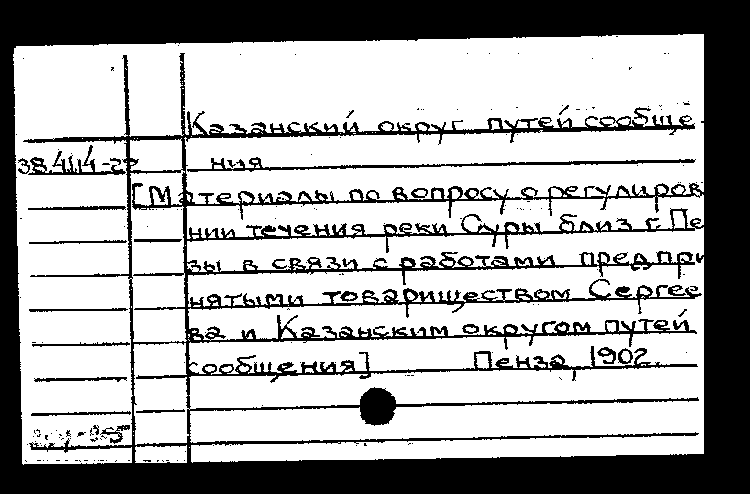 Казанский округ путей сообще-
38.41.14-22 ния
[Материалы по вопросу о регулиров
нии течения реки Суры близ г. Пе
зы в связи с работами предпри
нятыми товариществом Сергее
ва и Казанским округом путей
сообщения] Пенза, 1902.